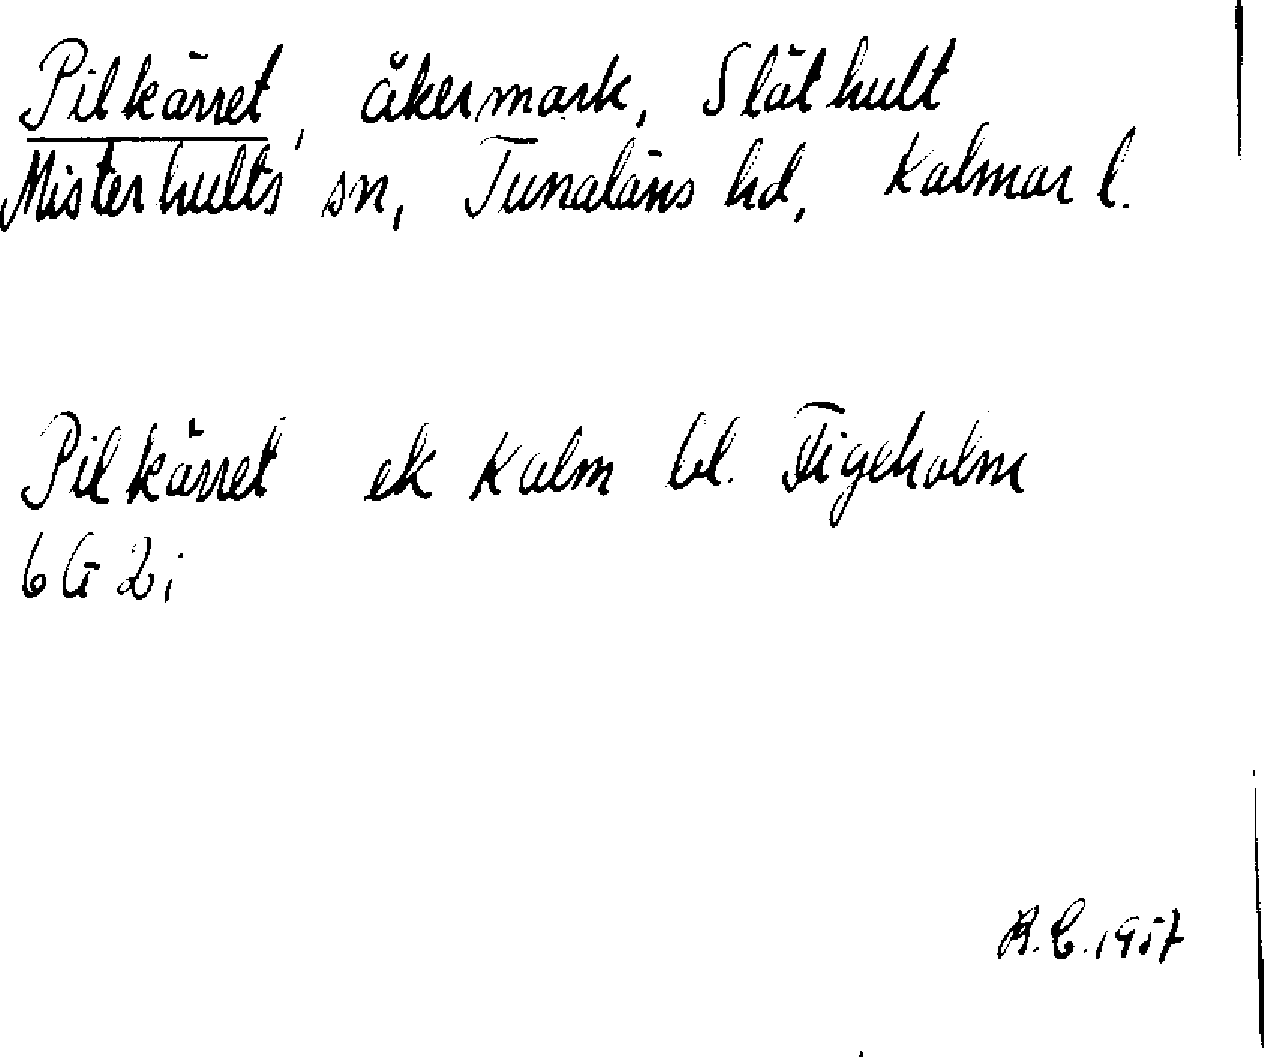 Pilkärret, åkermark, Släthult
Misterhults sn, Tunaläns hd, Kalmar l.
Pilkärret ek Kalm bl. Figeholm
6G 2i
R.C. 1957